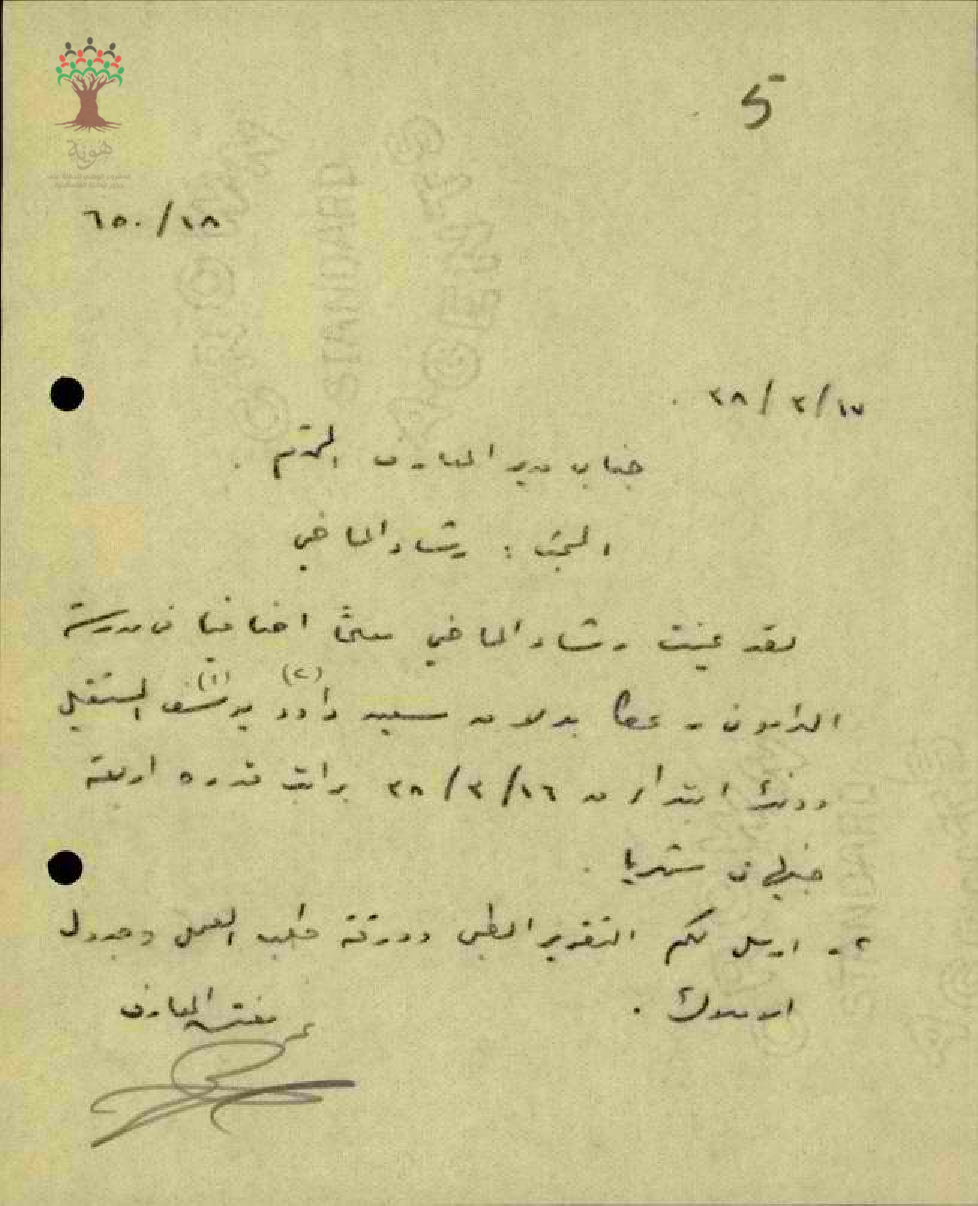 5
هوية
٦٥٠/١٨
١٧/٣/٣٨ .
جناب مدير المعارف المحترم .
المبحث : رشاد الماضي
لقد عينت رشاد الماضي معلماً اضافيا في مدرسة
الدامون - عكا بدلا من سعيد داود (٢) يوسف (١) المستقيل
وذلك ابتداء من ١٦/٣/٣٨ براتب قدره اربعة
جنيهات شهريا .
٢- ارسل لكم التقرير الطبي وورقة طلب العمل وجدول
الاملاك .
مفتش المعارف